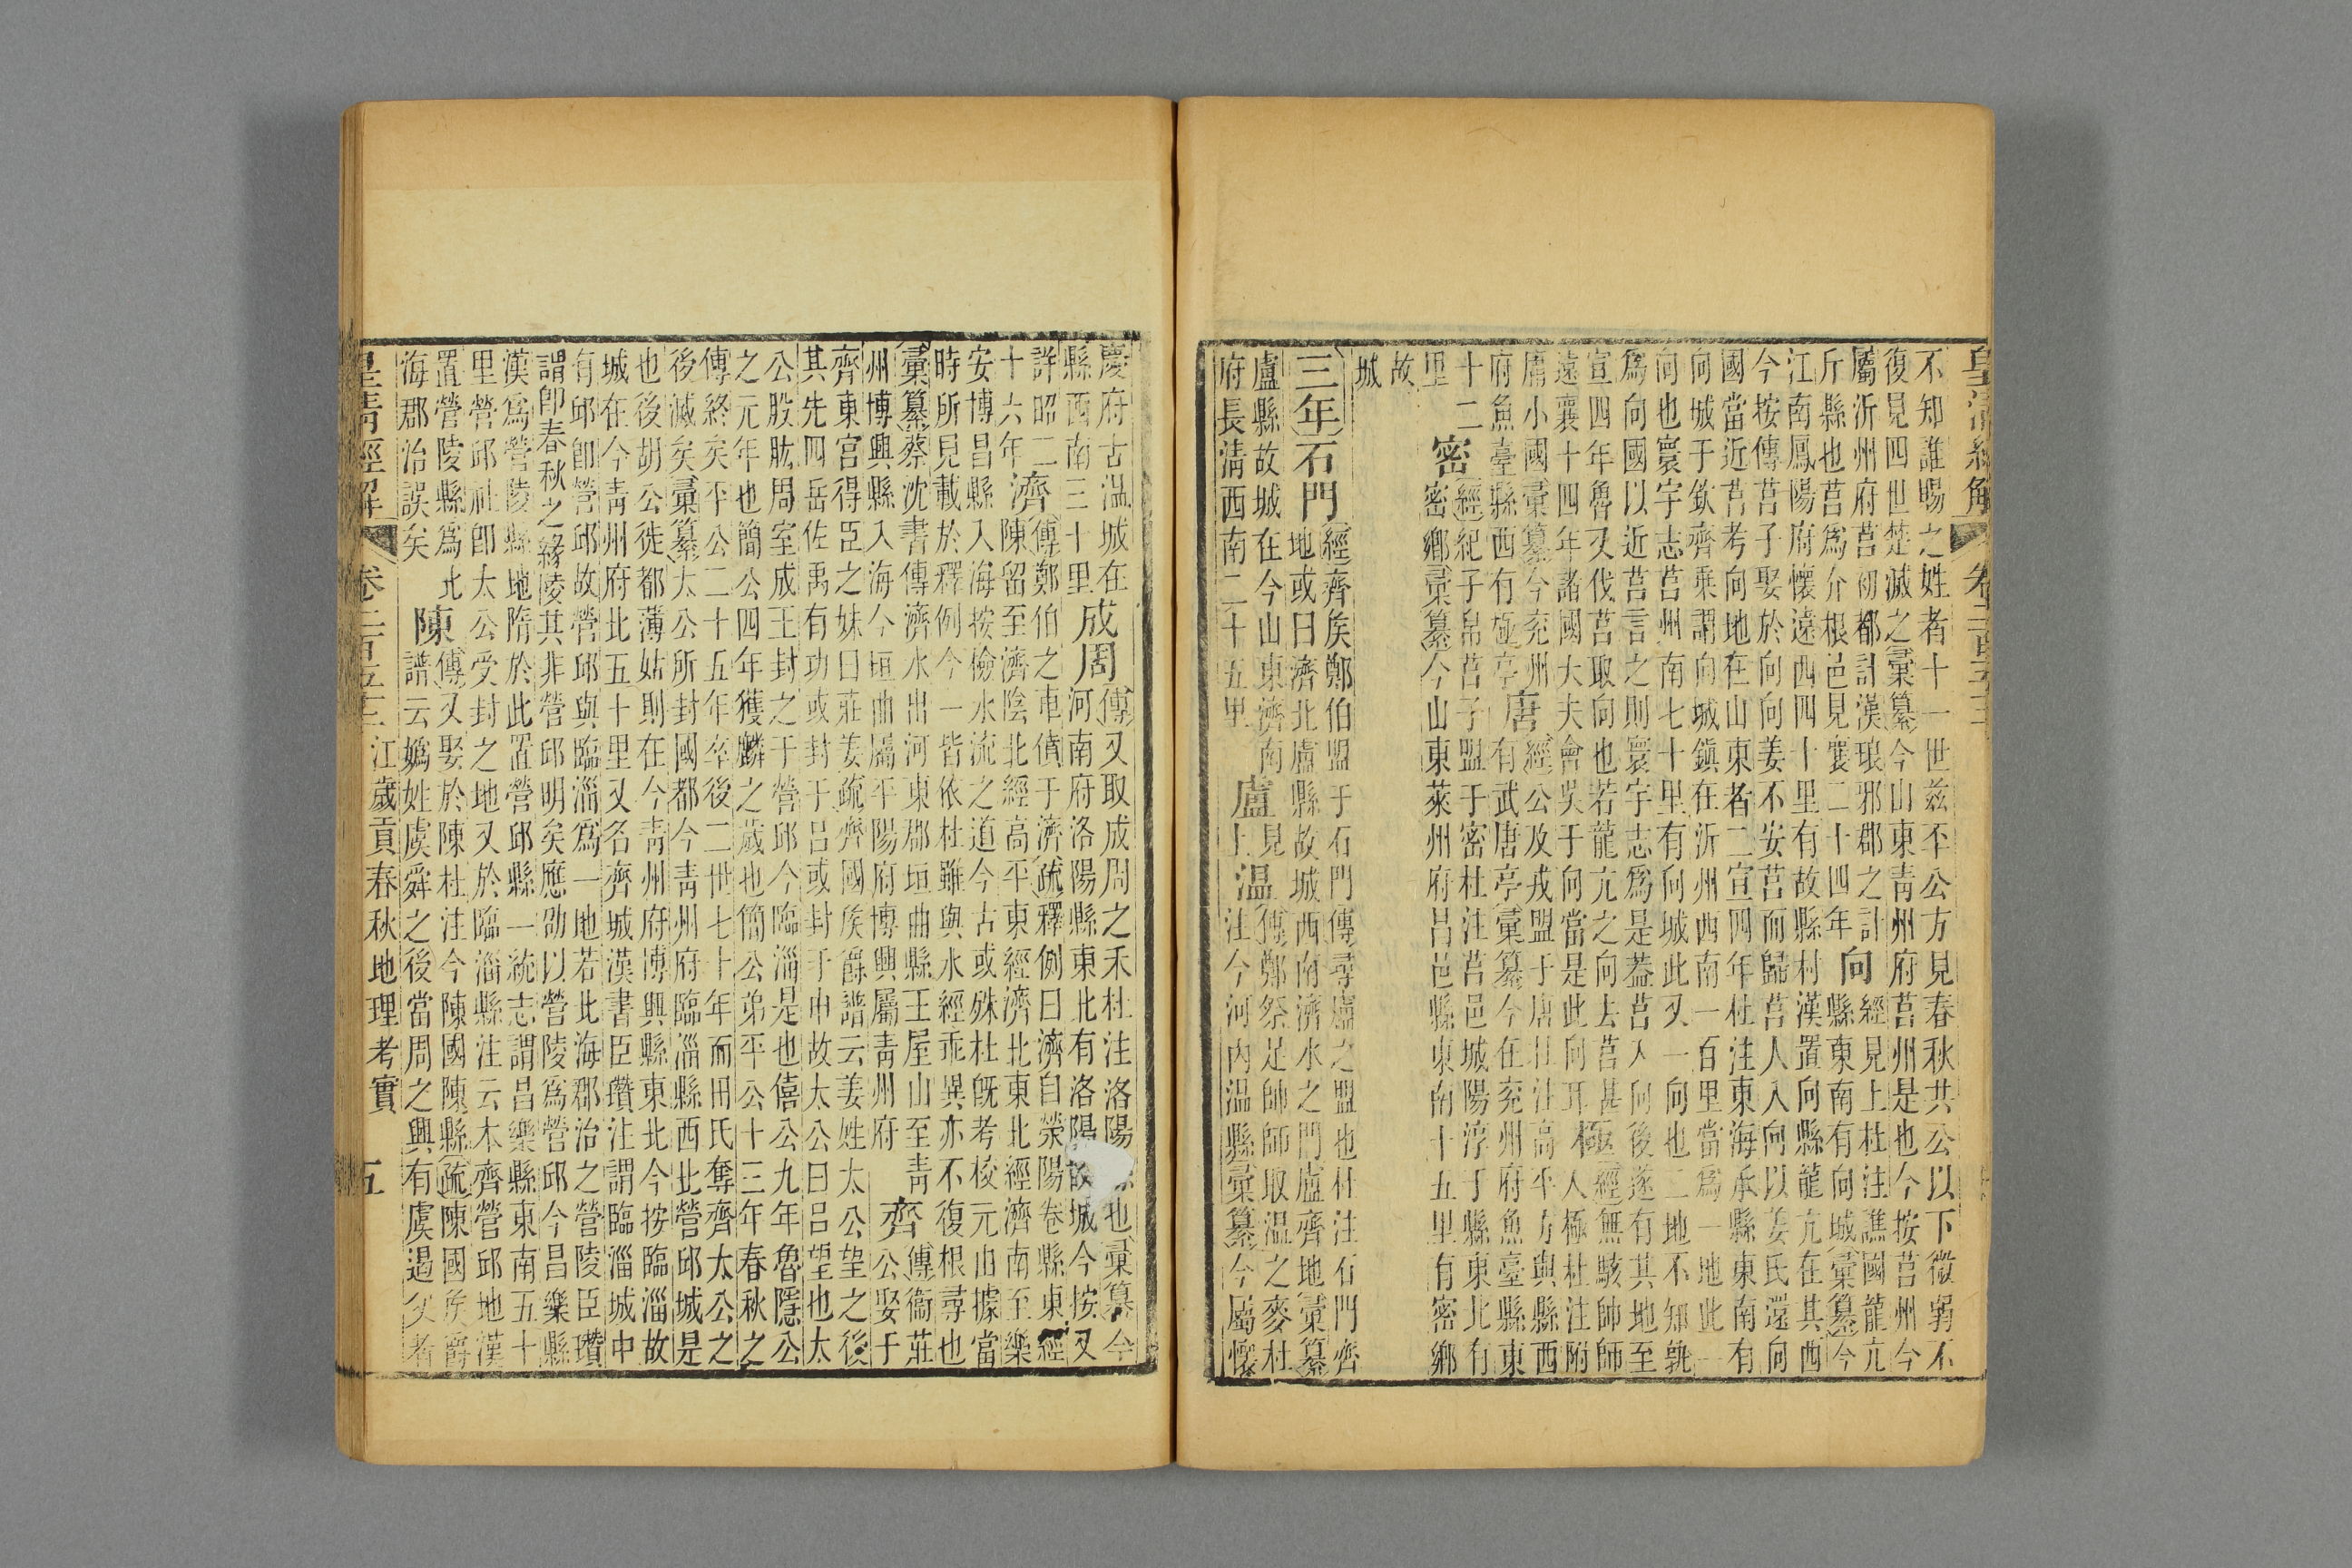 皇清經解 卷二百五十三
不知誰賜之姓者十一世茲丕公方見春秋共公以下微弱不
復見四世楚滅之彙纂今山東青州府莒州是也今按莒州今
屬沂州府莒初都計漢琅邪郡之計
斤縣也莒爲介根邑見襄二十四年
向
經見上杜注譙國龍亢
縣東南有向城彙纂今
江南鳳陽府懷遠西四十里有故縣村漢置向縣龍亢在其西
今按傳莒子娶於向向姜不安莒而歸莒人入向以姜氏還向
國當近莒考向地在山東者二宣四年杜注東海承縣東南有
向城于欽齊乘謂向城鎮在沂州西南一百里當爲一地此一
向也寰宇志莒州南七十里有向城此又一向也二地不知孰
爲向國以近莒言之則寰宇志爲是葢莒入向後遂有其地至
宣四年魯又伐莒取向也若龍亢之向去莒甚
遠襄十四年諸國大夫會吳于向當是此向耳
極
經無駭帥師
入極杜注附
庸小國彙纂今兗州
府魚臺縣西有極亭
唐
經公及戎盟于唐杜注高平方與縣西
有武唐亭彙纂今在兗州府魚臺縣東
十二
里
密
經紀子帛莒子盟于密杜注莒邑城陽淳于縣東北有
密鄉彙纂今山東萊州府昌邑縣東南十五里有密鄉
故
城
三年石門
經齊侯鄭伯盟于石門傳尋盧之盟也杜注石門齊
地或曰濟北盧縣故城西南濟水之門盧齊地彙纂
盧縣故城在今山東濟南
府長清西南二十五里
盧
見
上
溫
傳鄭祭足帥師取溫之麥杜
注今河內溫縣彙纂今屬懷
慶府古溫城在
縣西南三十里
成周
傳又取成周之禾杜注洛陽也彙纂今
河南府洛陽縣東北有洛陽故城今按又
許昭二
十六年
濟
傳鄭伯之車僨于濟疏釋例曰濟自滎陽卷縣東經
陳留至濟陰北經高平東經濟北東北經濟南至樂
安博昌縣入海按檢水流之道今古或殊杜旣考校元由據當
時所見載於釋例今一皆依杜雖與水經乖異亦不復根尋也
彙纂蔡沈書傳濟水出河東郡垣曲縣王屋山至青
州博興縣入海今垣曲屬平陽府博興屬青州府
齊
傳衞莊
公娶于
齊東宮得臣之妹曰莊姜疏齊國侯爵譜云姜姓太公望之後
其先四岳佐禹有功或封于呂或封于申故太公曰呂望也太
公股肱周室成王封之于營邱今臨淄是也僖公九年魯隱公
之元年也簡公四年獲麟之歲也簡公弟平公十三年春秋之
傳終矣平公二十五年卒後二世七十年而田氏奪齊太公之
後滅矣彙纂太公所封國都今青州府臨淄縣西北營邱城是
也後胡公徙都薄姑則在今青州府博興縣東北今按臨淄故
城在今青州府北五十里又名齊城漢書臣瓚注謂臨淄城中
有邱卽營邱故營邱與臨淄爲一地若北海郡治之營陵臣瓚
謂卽春秋之緣陵其非營邱明矣應劭以營陵爲營邱今昌樂縣
漢爲營陵縣地隋於此置營邱縣一統志謂昌樂縣東南五十
里營邱社卽太公受封之地又於臨淄縣注云本齊營邱地漢
置營陵縣爲北
海郡治誤矣
陳
傳又娶於陳杜注今陳國陳縣疏陳國侯爵
譜云嬀姓虞舜之後當周之興有虞遏父者
皇清經解 卷二百五十三 江歲貢春秋地理考實 五